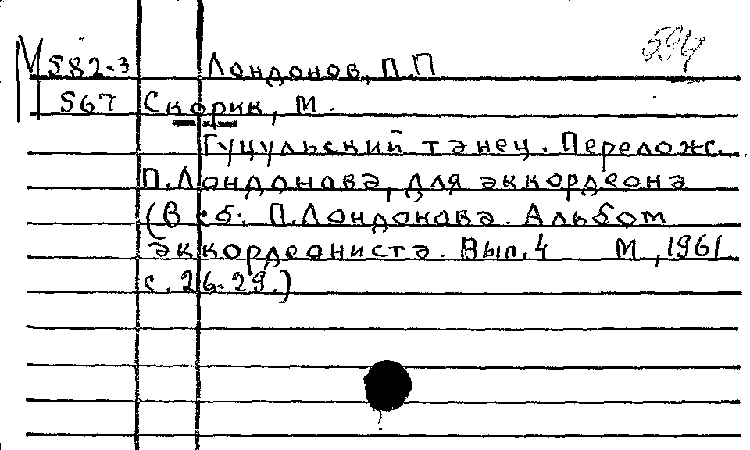 М582-3 Лондонов, П.П. 594
567 Скорик, М.
Гуцульский танец. Перелож.
П.Лондонова, для аккордеона
(В сб: П.Лондонова. Альбом
аккордеониста. Вып.4 М,1961
с. 26-29.)